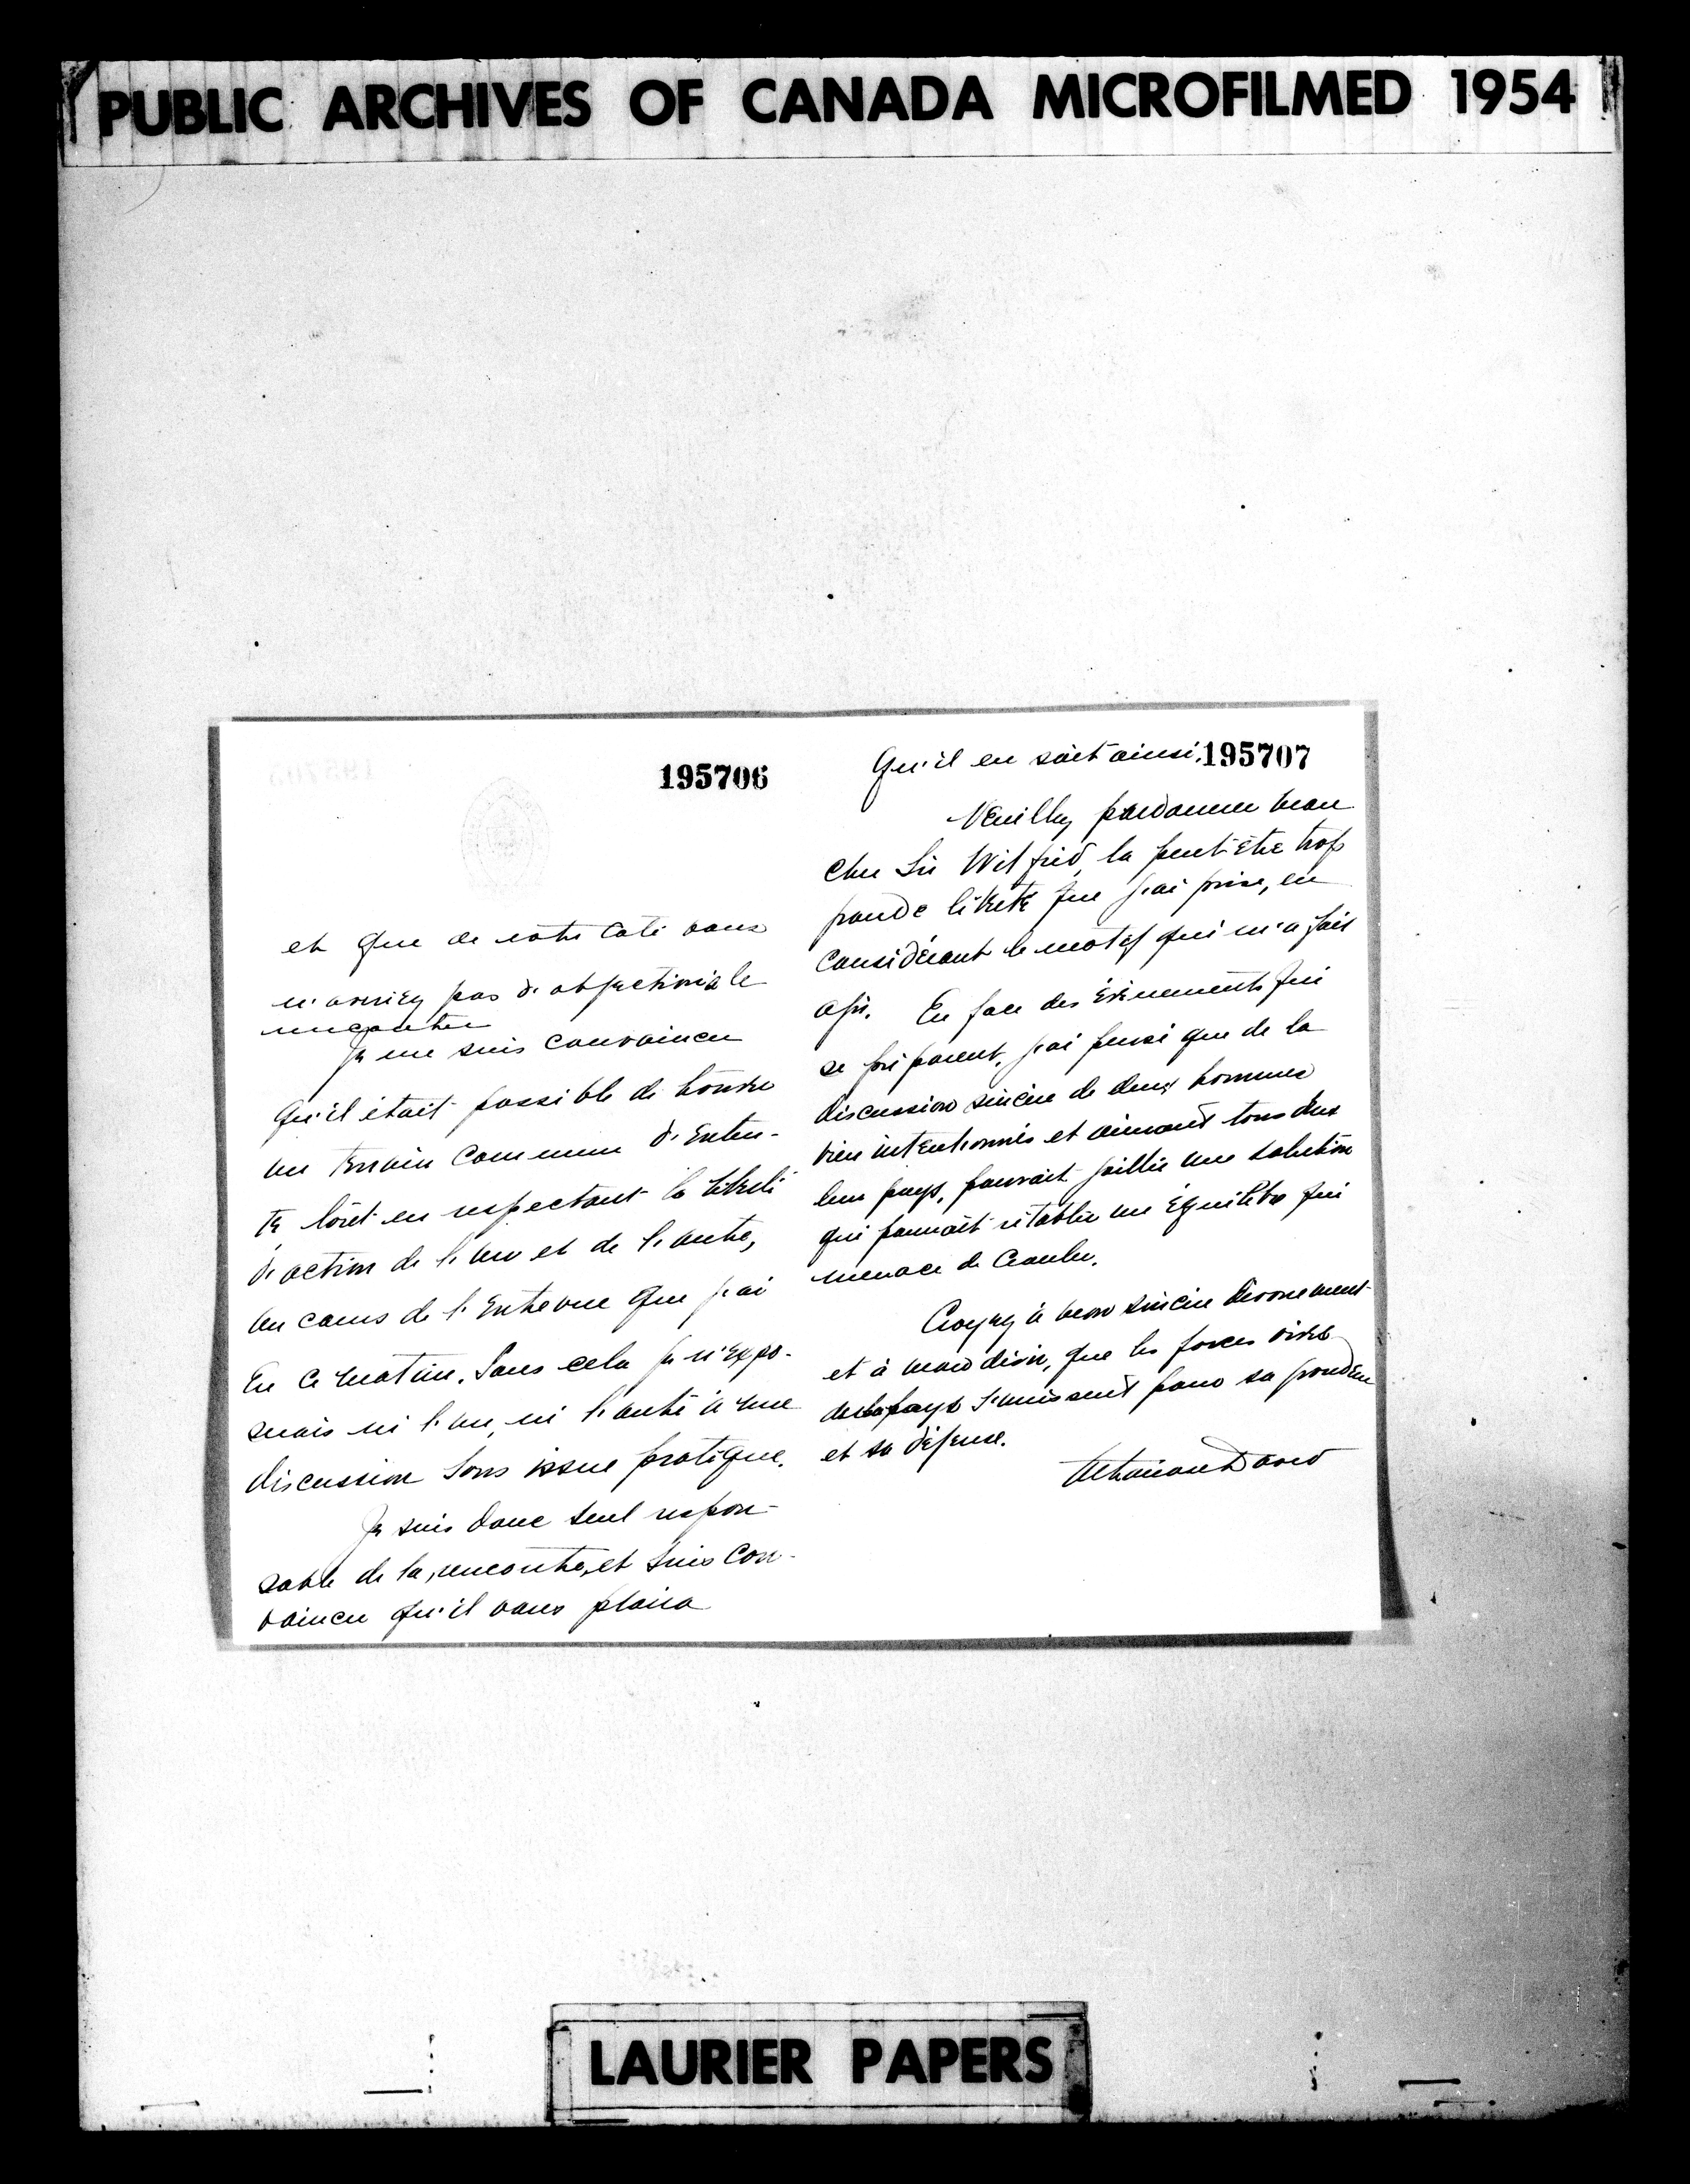 PUBLIC ARCHIVES OF CANADA MICROFILMED 1954
195706
et que de votre côté vous
n'auriez pas d'objection à le
rencontrer
Je me suis convaincu
qu'il était possible de trouver
un terrain commun d'enten-
te, tout en respectant la liberté
d'action de l'un et de l'autre,
au cours de l'entrevue que j'ai
eu ce matin. Sans cela je n'expo-
serais ni l'un, ni l'autre à une
discussion sans issue pratique.
Je suis donc seul respon-
sable de la rencontre, et suis con-
vaincu qu'il vous plaira
195707
qu'il en soit ainsi.
Veuillez pardonner mon
cher Sir Wilfrid, la peut-être trop
grande liberté que j'ai prise, en
considérant le motif qui m'a fait
agir. En face des événements qui
se préparent, j'ai pensé que de la
discussion sincère de deux hommes
bien intentionnés et aimant tous deux
leur pays, pouvait jaillir une solution
qui pourrait rétablir un équilibre qui
menace de crouler.
Croyez à mon sincère dévouement
et à mon désir, que les forces vives
de la pays s'unissent pour sa grandeur
et sa défense.
Athanase David
LAURIER PAPERS